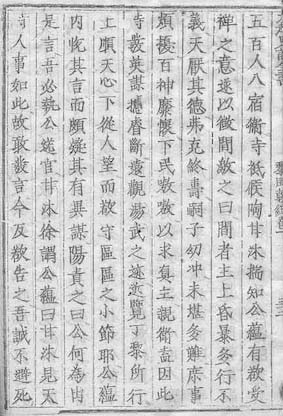 五百人入宿衛寺祗候陶甘沐揣知公蘊有欲受
禪之意遂以微間激之曰間者主上昏暴多行不
義天厭其德弗克終壽嗣子幼冲未堪多難庶事
煩擾百神靡懷下民嗷嗷以求真主親衛盍因此
時發英謀攄睿斷遠觀湯武之迹近覽丁黎所行
上順天心下從人望而欲守區區之小節耶公蘊
内恱其言而頗疑其有異謀陽責之曰公何為内
是言吾必執公送官甘沐徐謂公蘊曰甘沐見天
時人事如此故敢發言今反欲告之吾誠不避死